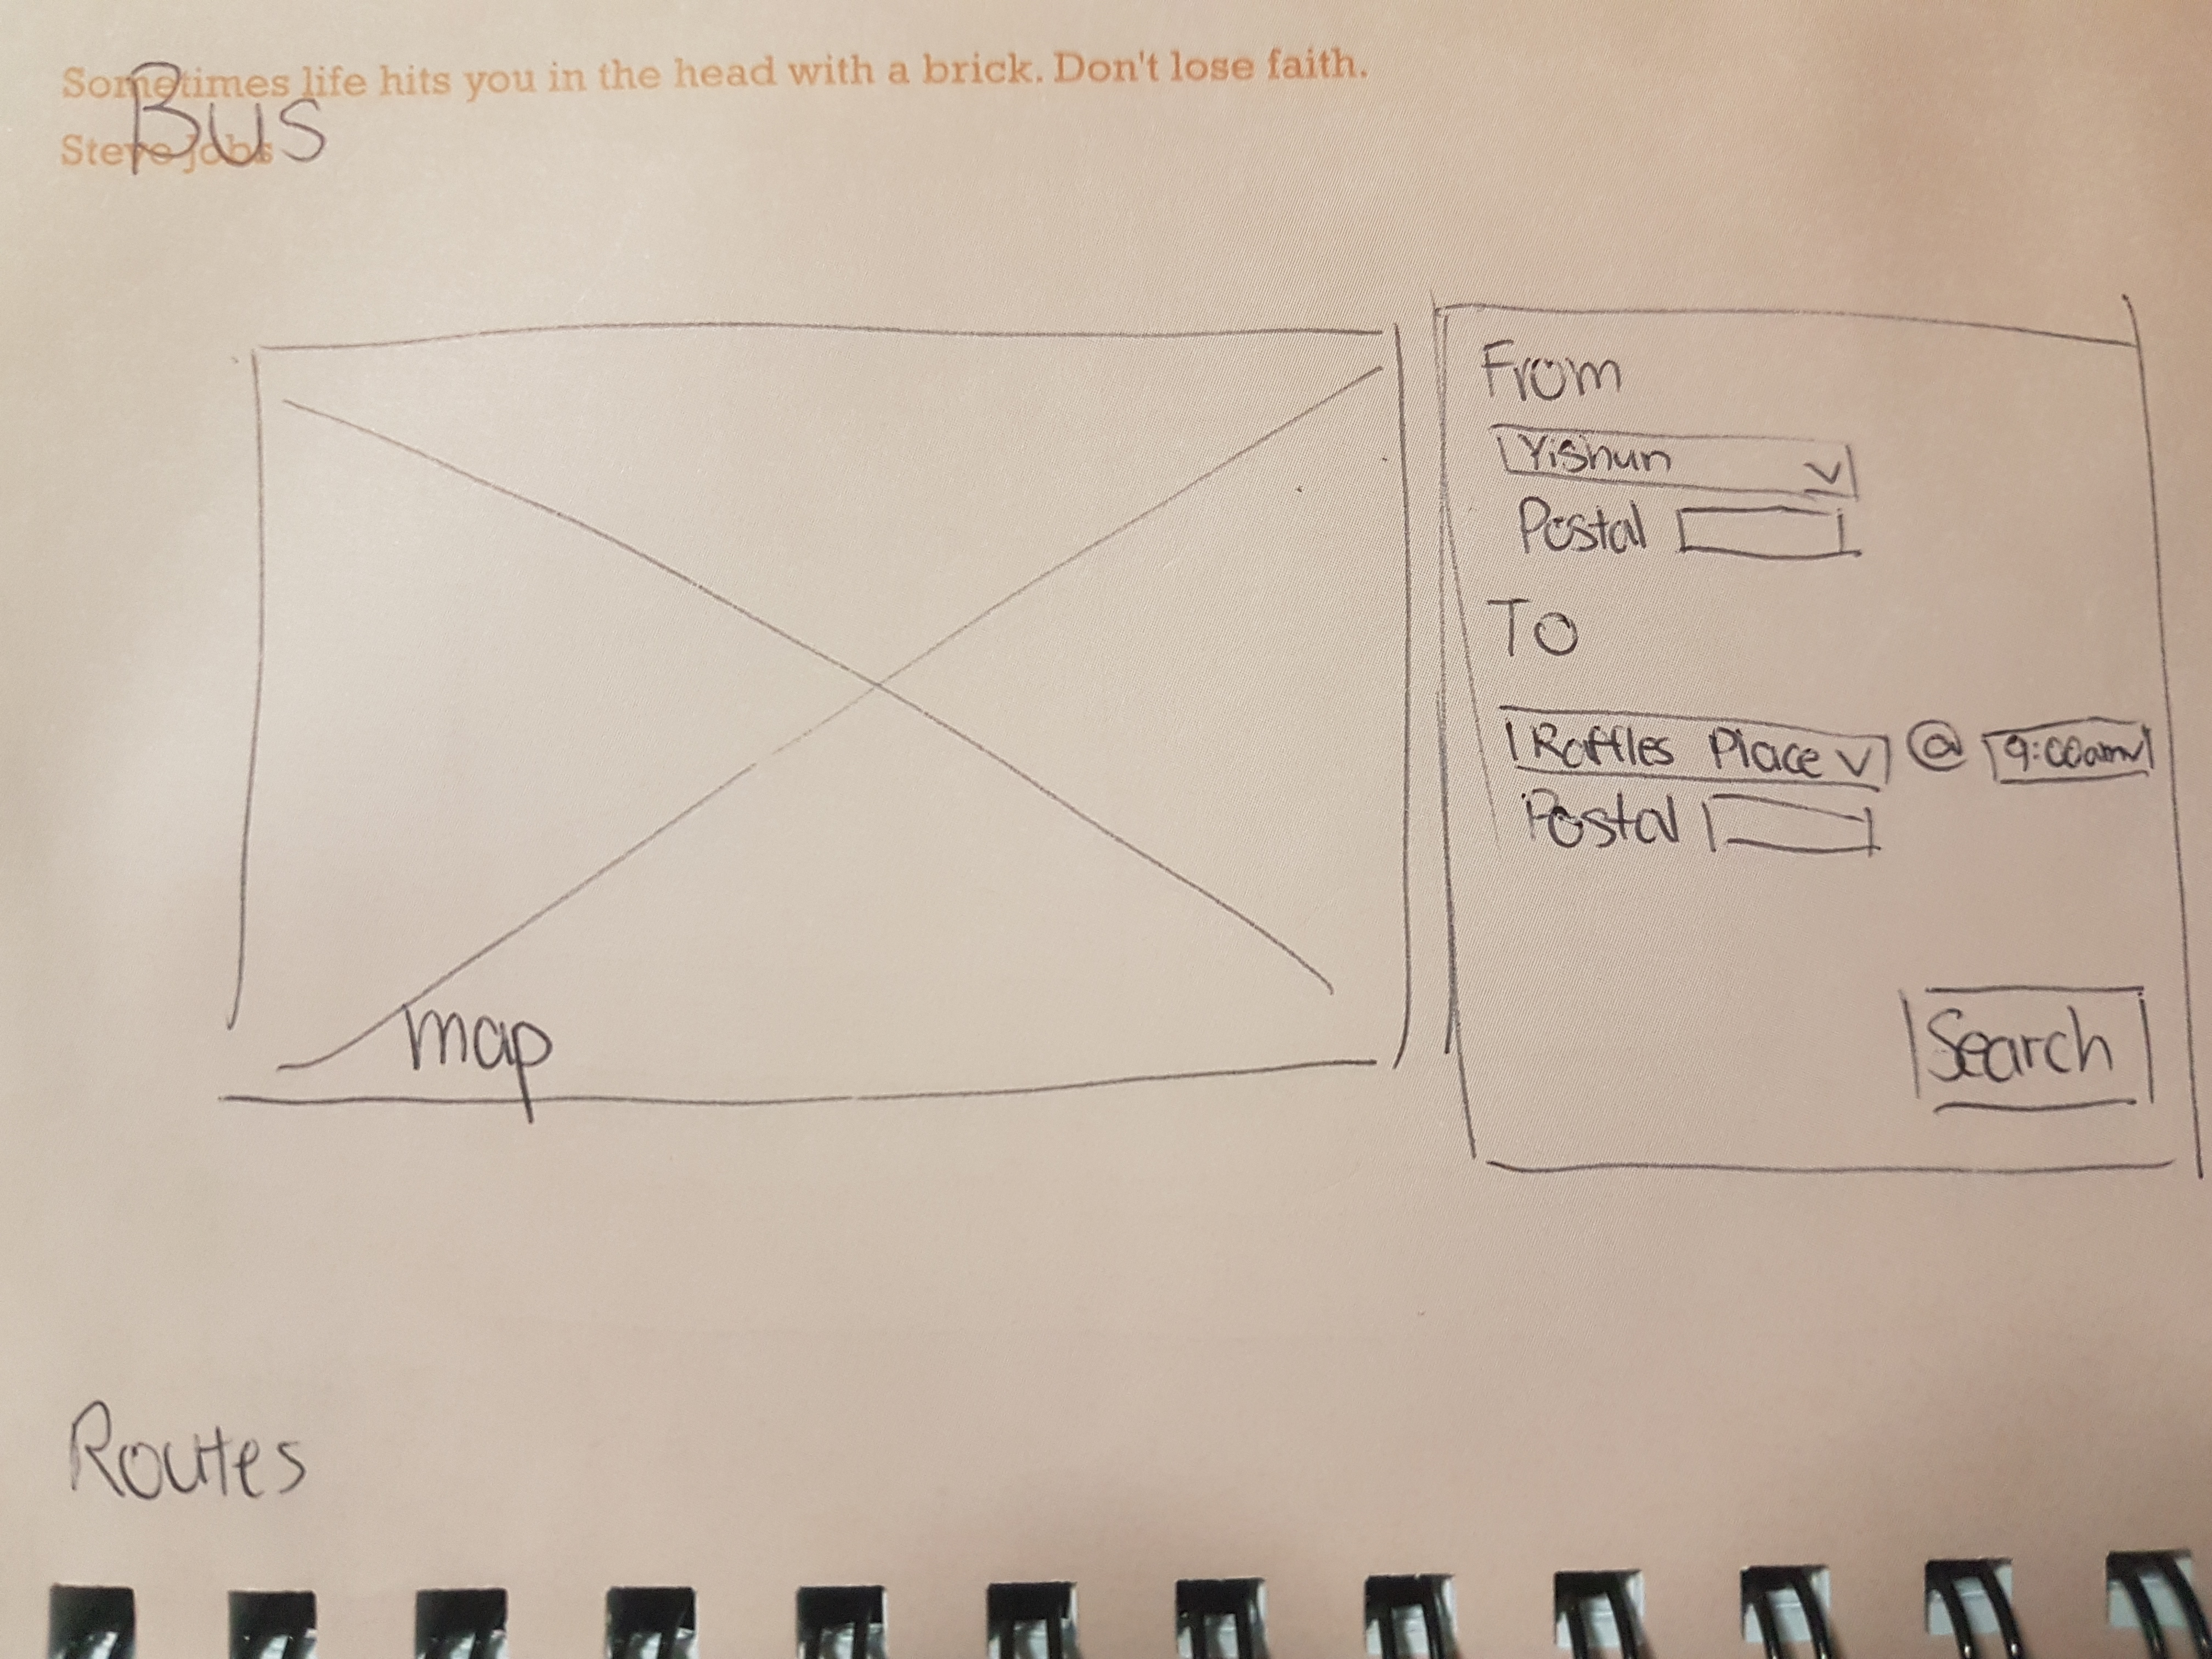 Sometimes life hits you in the head with a brick. Don't lose faith.
Steve Jobs
Bus
From
Yishun
Postal
To
Raffles Place @ 9:00am
Postal
Search
map
Routes